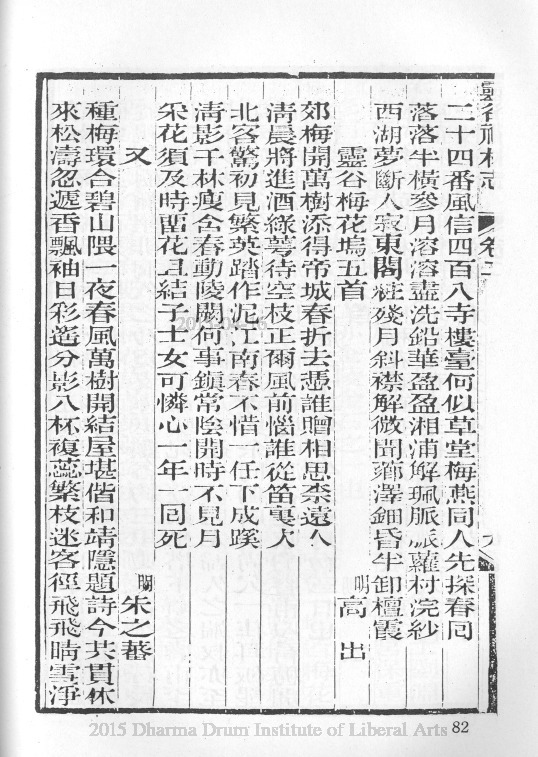 靈谷禪林志 卷十
二十四番風信四百八寺樓臺何似草堂梅燕同人先探春囘
落落半橫參月溶溶盡洗鉛華盈盈湘浦解珮脈脈蘿村浣紗
西湖夢斷人寂東閣粧殘月斜襟解微聞薌澤鈿昏半卸檀霞
靈谷梅花塢五首 明 高出
郊梅開萬樹添得帝城春折去慿誰贈相思柰遠人
淸晨將進酒綠萼待空枝正爾風前惱誰從笛裏火
北客驚初見繁英踏作泥江南春不惜一任下成蹊
淸影千林瘦含春動陵闕何事鎭常陰開時不見月
采花須及時畱花且結子士女可憐心一年一囘死
又 關 朱之蕃
種梅環合碧山隈一夜春風萬樹開結屋堪偕和靖隱題詩今共貫休
來松濤忽遞香飄袖日彩遙分影入杯複蕊繁枝迷客徑飛飛晴雪淨
2015 Dharma Drum Institute of Liberal Arts 82